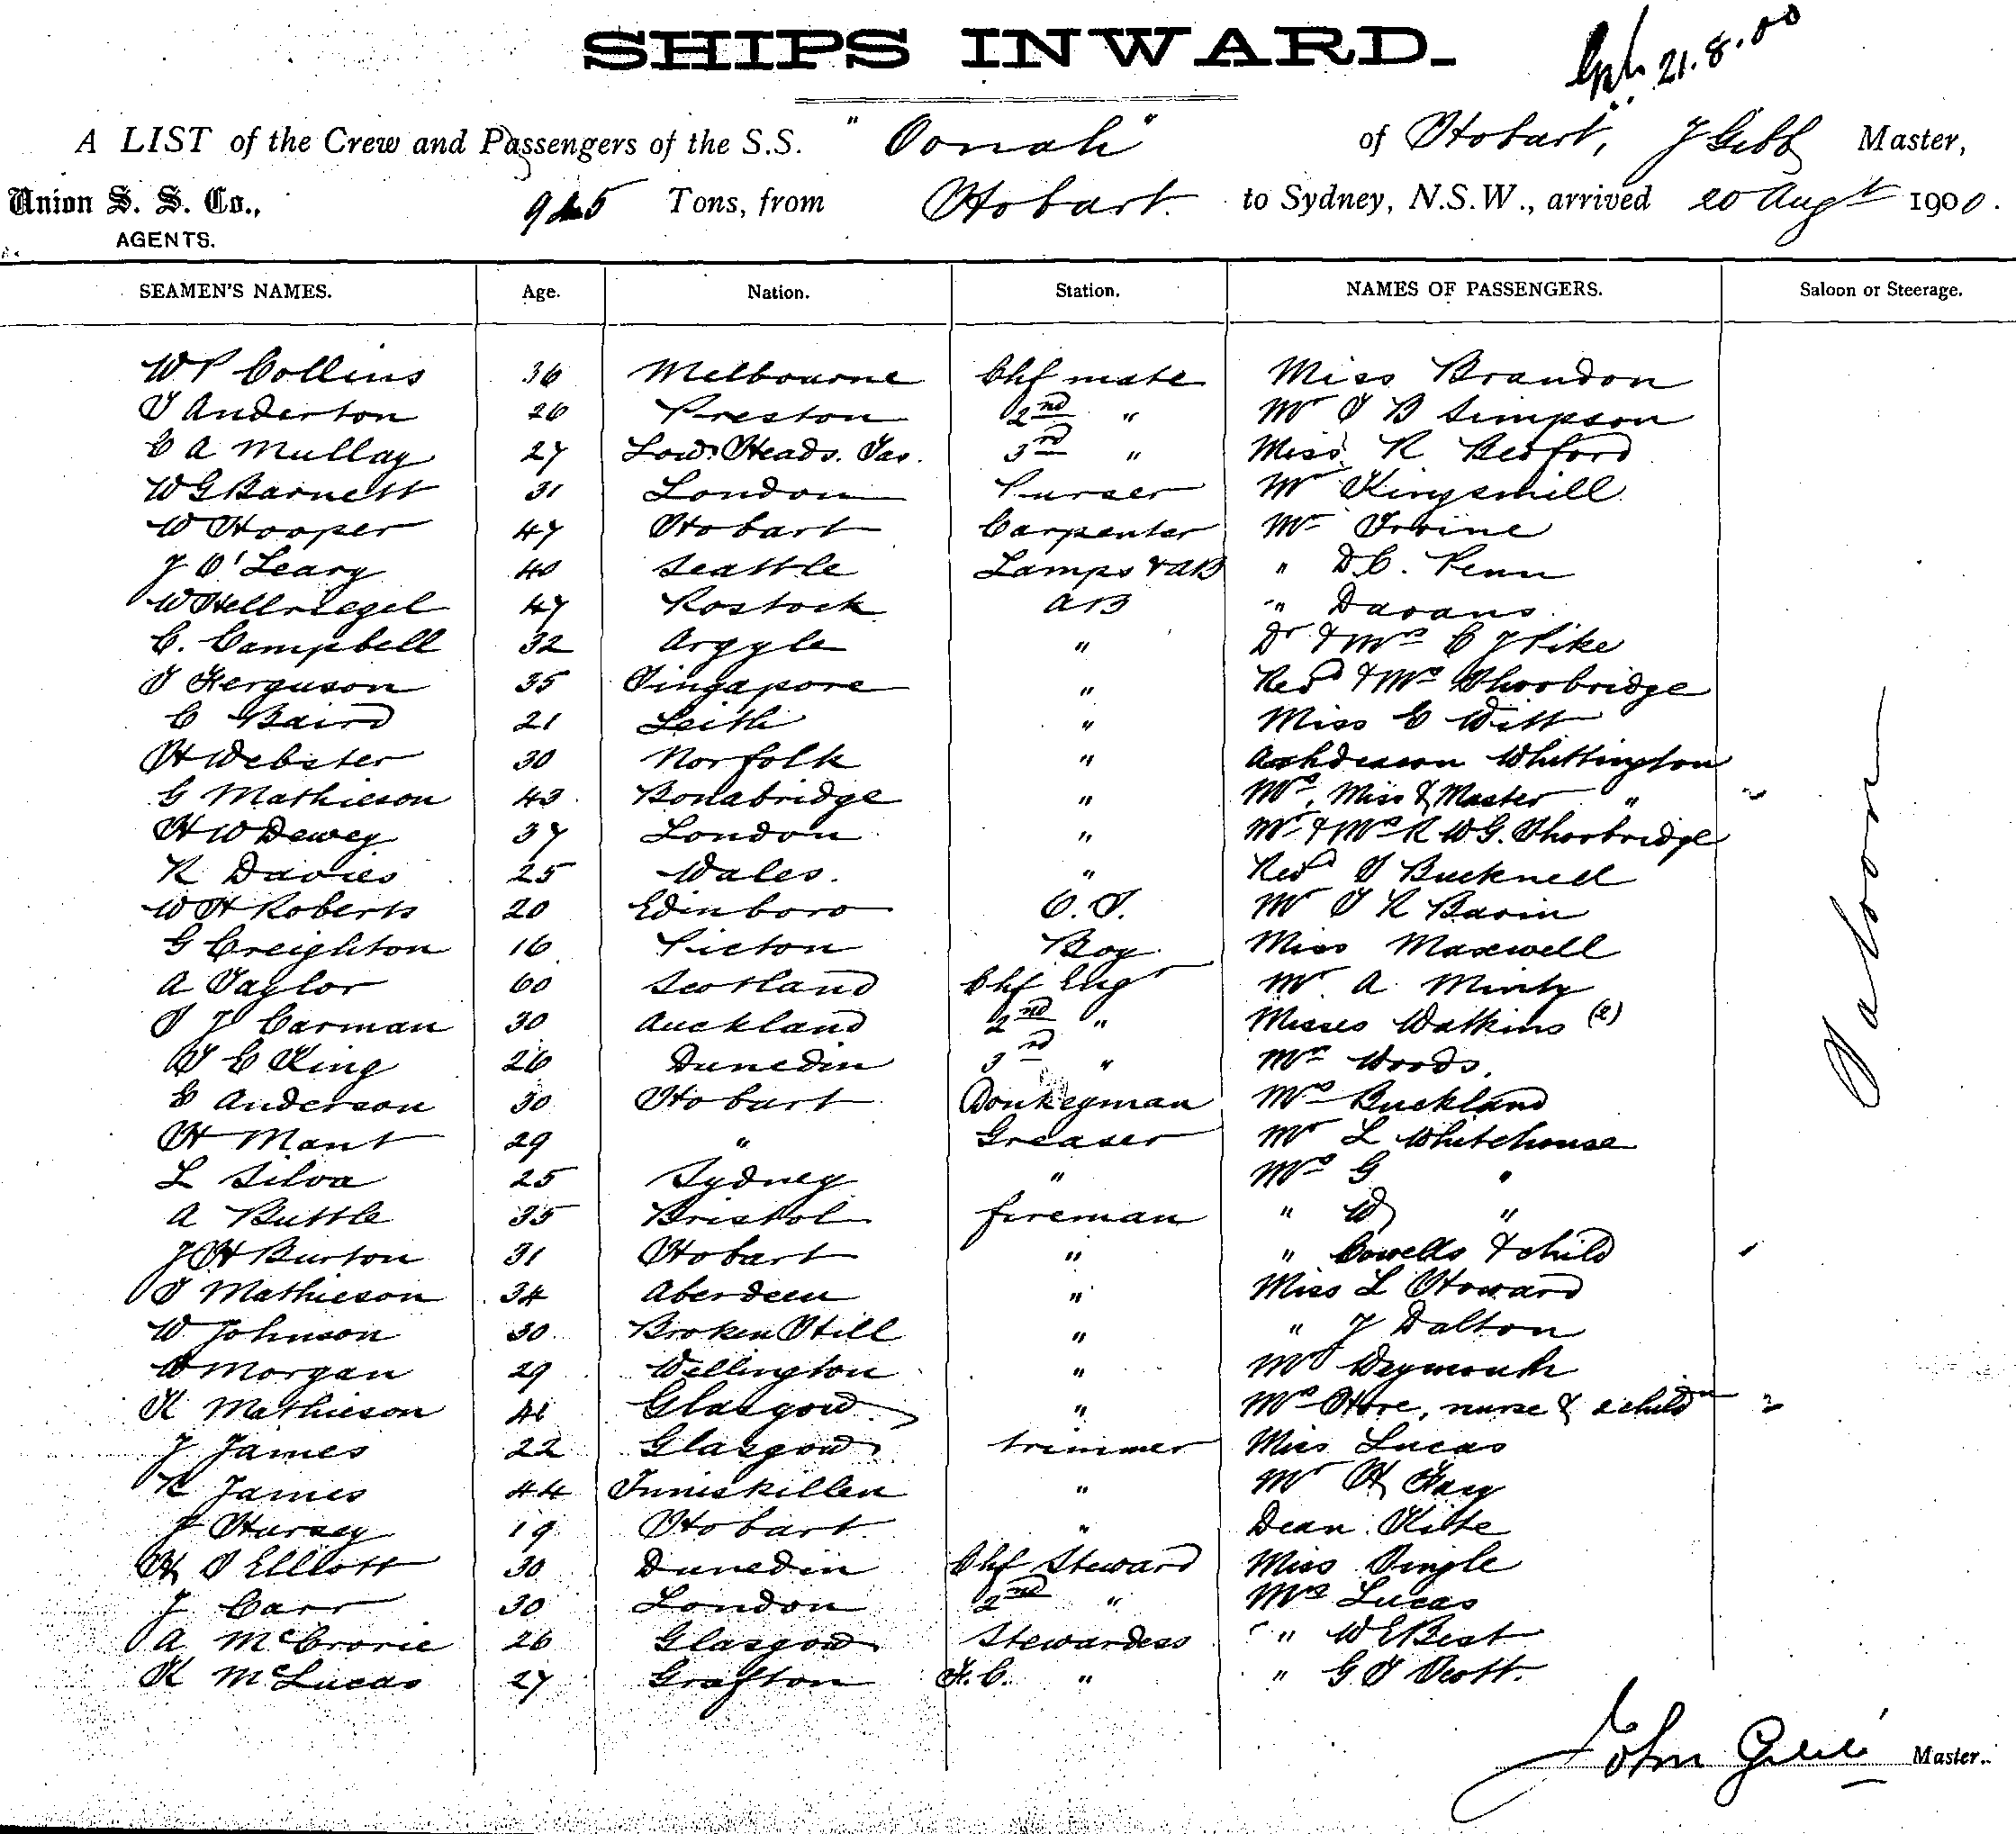 SHIPS INWARD.
21.8.00
A LIST of the Crew and Passengers of the S.S. "Oonah" of Hobart, J Gibb Master,
Union S. S. Co., 925 Tons, from Hobart. to Sydney, N.S.W., arrived 20 Augt 1900.
AGENTS.
SEAMEN'S NAMES. Age. Nation. Station. NAMES OF PASSENGERS. Saloon or Steerage.
W P Collins 36 Melbourne Chf mate Miss Brandon
T Anderton 26 Preston 2nd " Mr T B Simpson
E A Mullay 27 Low Heads. Tas. 3rd " Miss R Bedford
W G Barnett 31 London Purser Mr Kingsmill
W Hooper 47 Hobart Carpenter Mr Irvine
J O'Leary 40 Seattle Lamps & AB " D C. Penn
W Hellriegel 47 Rostock AB " Davans
C. Campbell 32 Argyle " Dr & Mrs C J Pike
T Ferguson 35 Singapore " Revd & Mrs Shoobridge
C Baird 21 Leith " Miss E Witt
H Webster 30 Norfolk " Archdeacon Whittington
G Mathieson 43 Bonabridge " Mrs, Miss & Master "
H W Dewey 37 London " Mr & Mrs R W G. Shoobridge
R Davies 25 Wales. " Revd T Bucknell
W H Roberts 20 Edinboro O. S. Mr T R Bavin
G Creighton 16 Picton Boy Miss Maxwell
A Taylor 60 Scotland Chf Engr Mr A Minty
T J Carman 30 Auckland 2nd " Misses Watkins (2)
T E King 26 Dunedin 3rd " Mr Woods.
E Anderson 30 Hobart Donkeyman Mrs Buckland
H Mant 29 " Greaser Mr L Whitehouse
L Silva 25 Sydney " Mrs G "
A Buttle 35 Bristol fireman " W "
J H Burton 31 Hobart " " Cowells & child
T Mathieson 34 Aberdeen " Miss L Howard
W Johnson 30 Broken Hill " " J Dalton
W Morgan 29 Wellington " Mr Weymouth
K Mathieson 41 Glasgow " Mrs Hore, nurse & 2 childn
J James 22 Glasgow trimmer Miss Lucas
R James 44 Inniskillen " Mr H Fay
J Hursey 19 Hobart " Dean Kite
H T Elliott 30 Dunedin Chf Steward Miss Pringle
J Carr 30 London 2nd " Mrs Lucas
A McCrorie 26 Glasgow Stewardess " W E Bist
K McLucas 27 Grafton F. C. " " G T Scott.
Saloon
John Gibb Master.